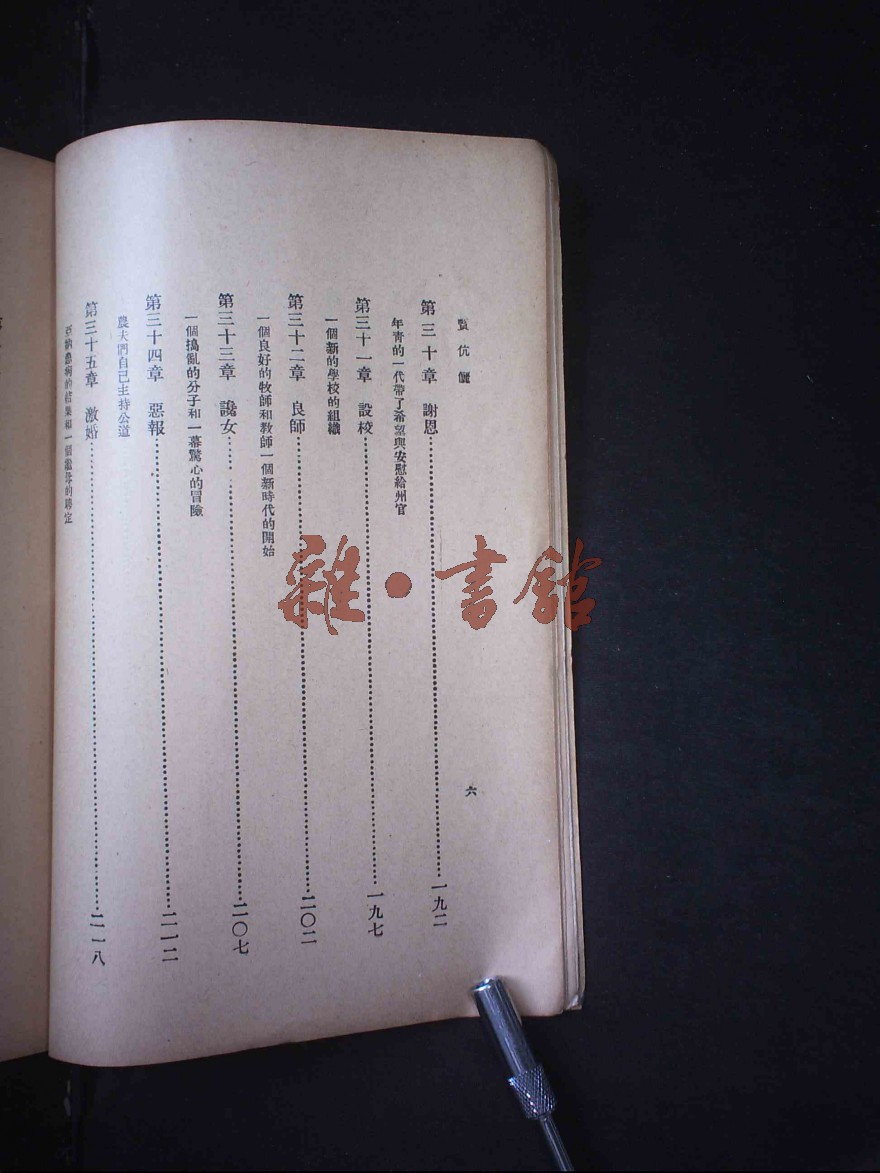 賢伉儷
六
第三十章 謝恩……一九二
年青的一代帶了希望與安慰給州官
第三十一章 設校……一九七
一個新的學校的組織
第三十二章 良師……二〇二
一個良好的牧師和教師一個新時代的開始
第三十三章 讒女……二〇七
一個搗亂的分子和一幕驚心的冒險
第三十四章 惡報……二一二
農夫們自己主持公道
第三十五章 激婚……二一八
患病的結果和一個的
雜·書館